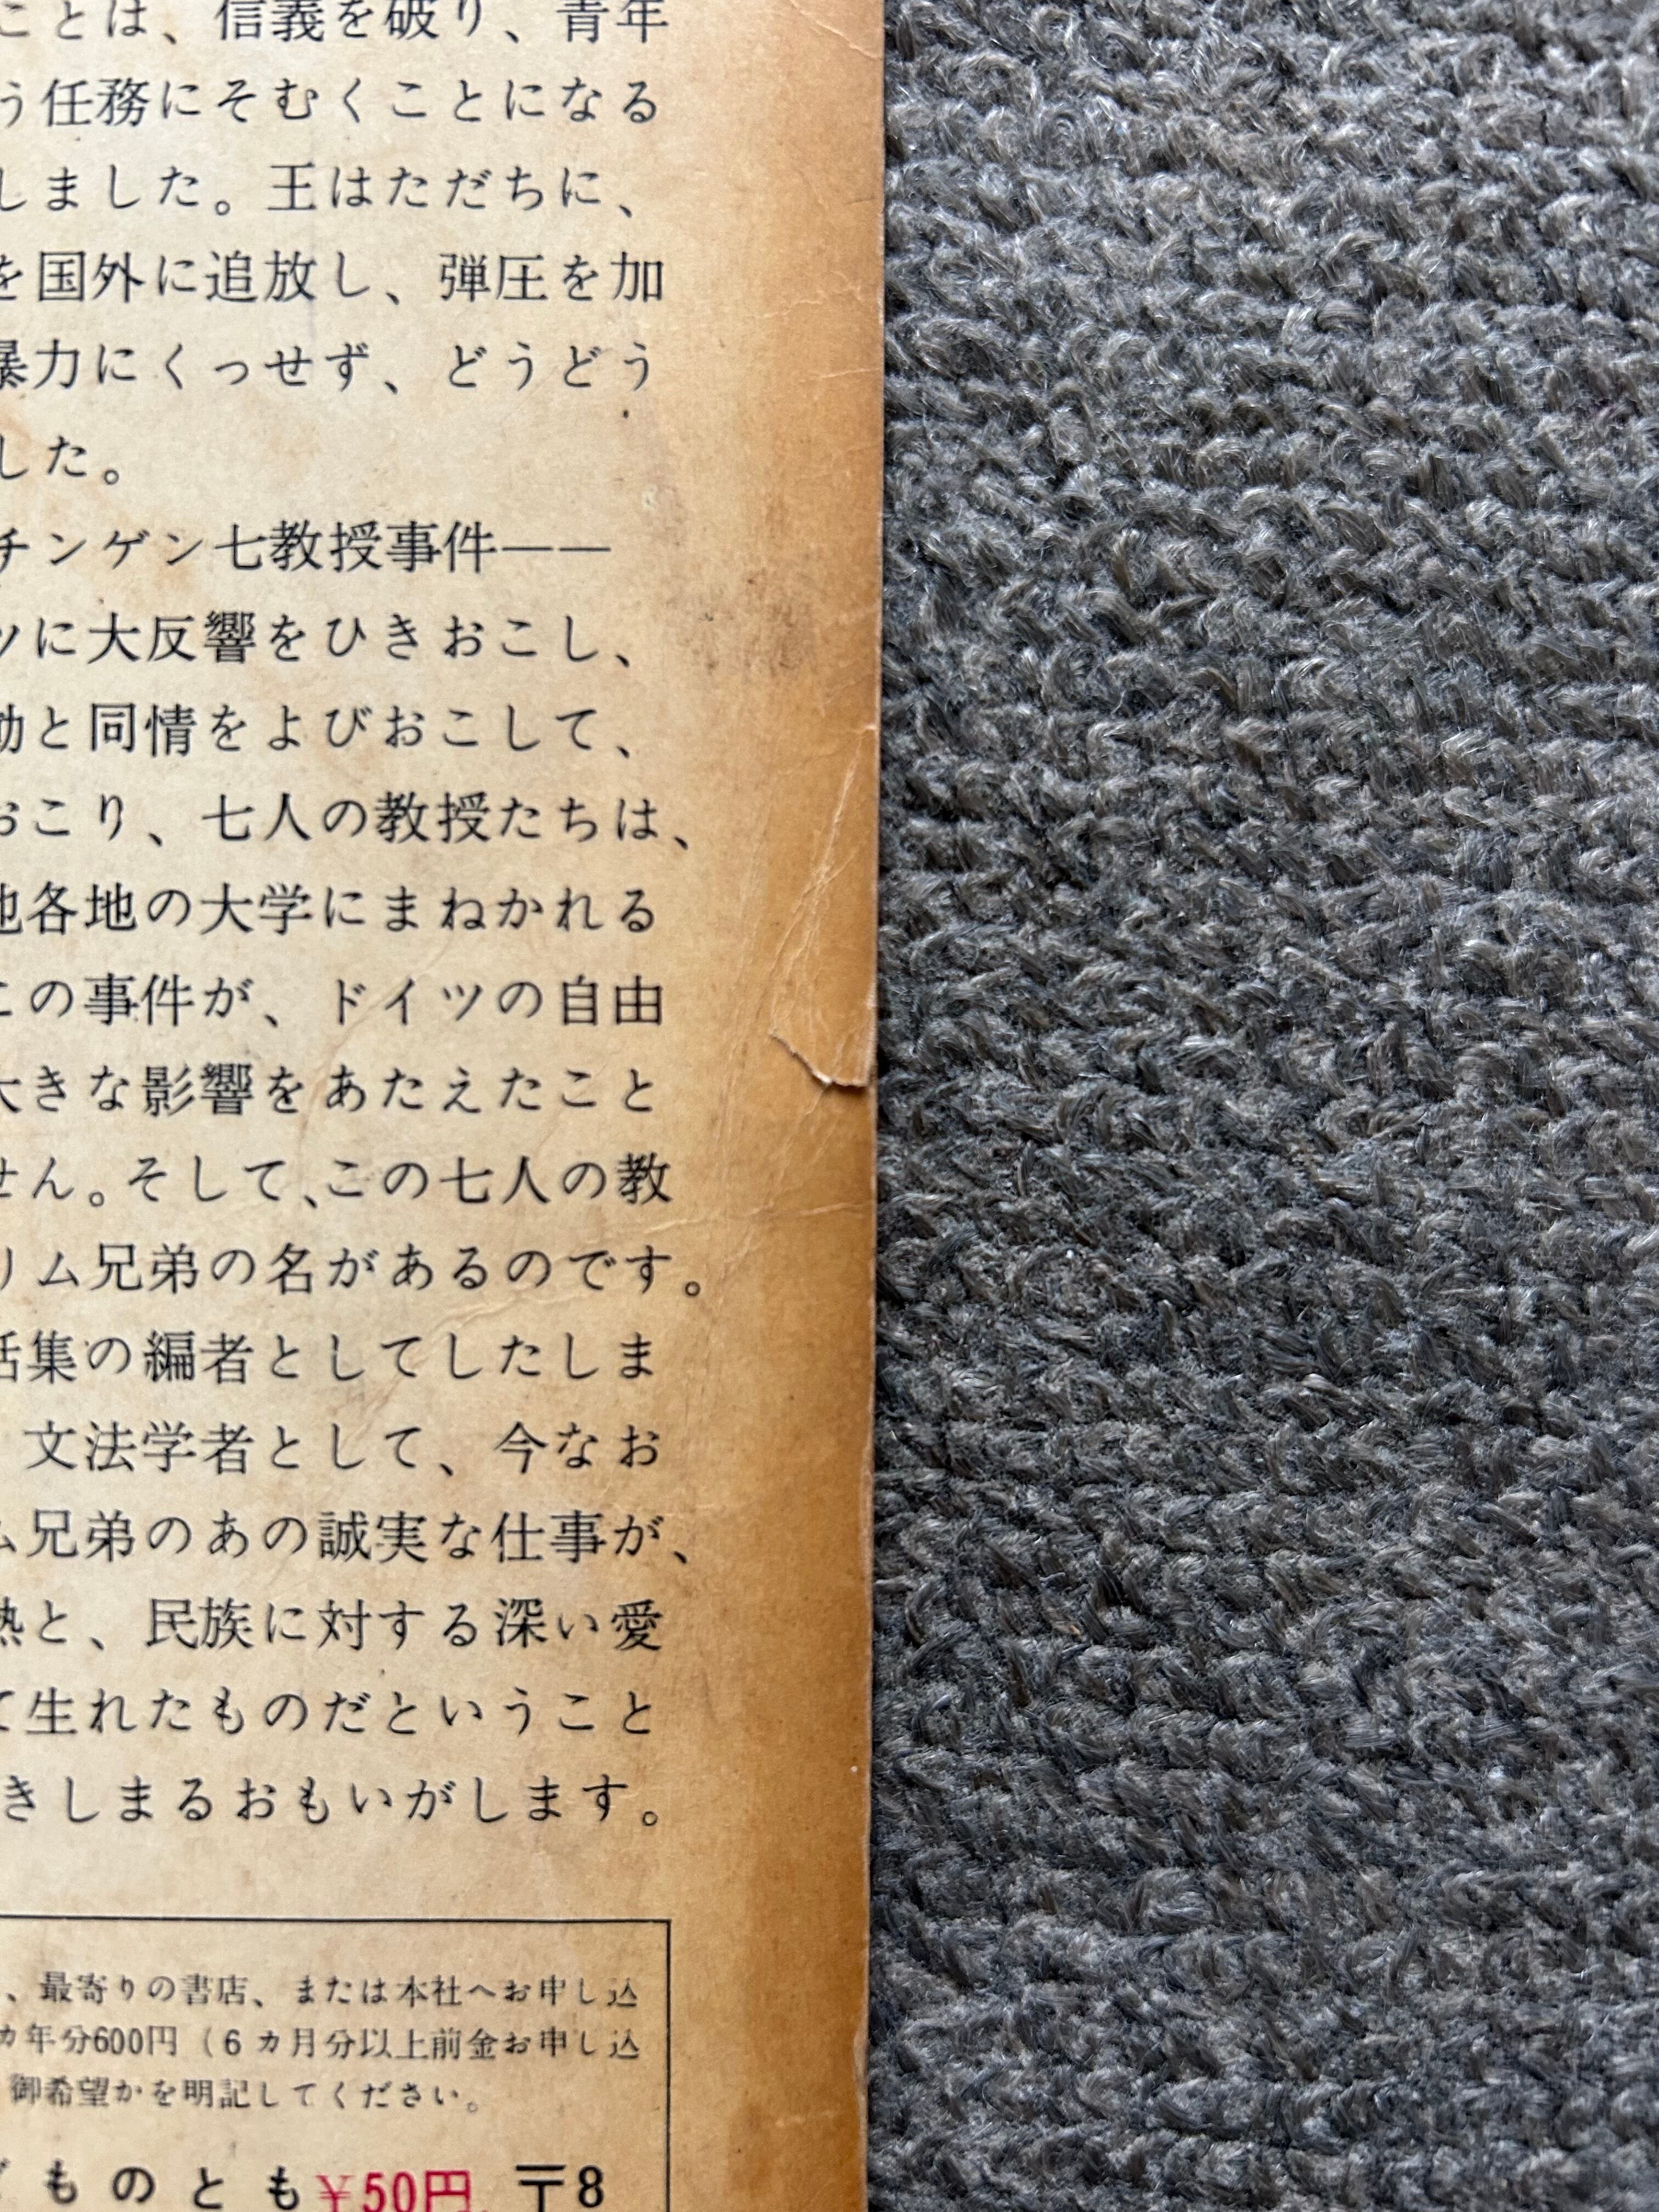 ことは、信義を破り、青年
う任務にそむくことになる
しました。王はただちに、
を国外に追放し、弾圧を加
暴力にくっせず、どうどう
した。
チンゲン七教授事件——
ツに大反響をひきおこし、
動と同情をよびおこして、
おこり、七人の教授たちは、
他各地の大学にまねかれる
この事件が、ドイツの自由
大きな影響をあたえたこと
せん。そして、この七人の教
リム兄弟の名があるのです。
話集の編者としてしたしま
文法学者として、今なお
ム兄弟のあの誠実な仕事が、
熱と、民族に対する深い愛
て生れたものだということ
きしまるおもいがします。
、最寄りの書店、または本社へお申し込
カ年分600円（6カ月分以上前金お申し込
御希望かを明記してください。
どものとも ¥50円 〒8